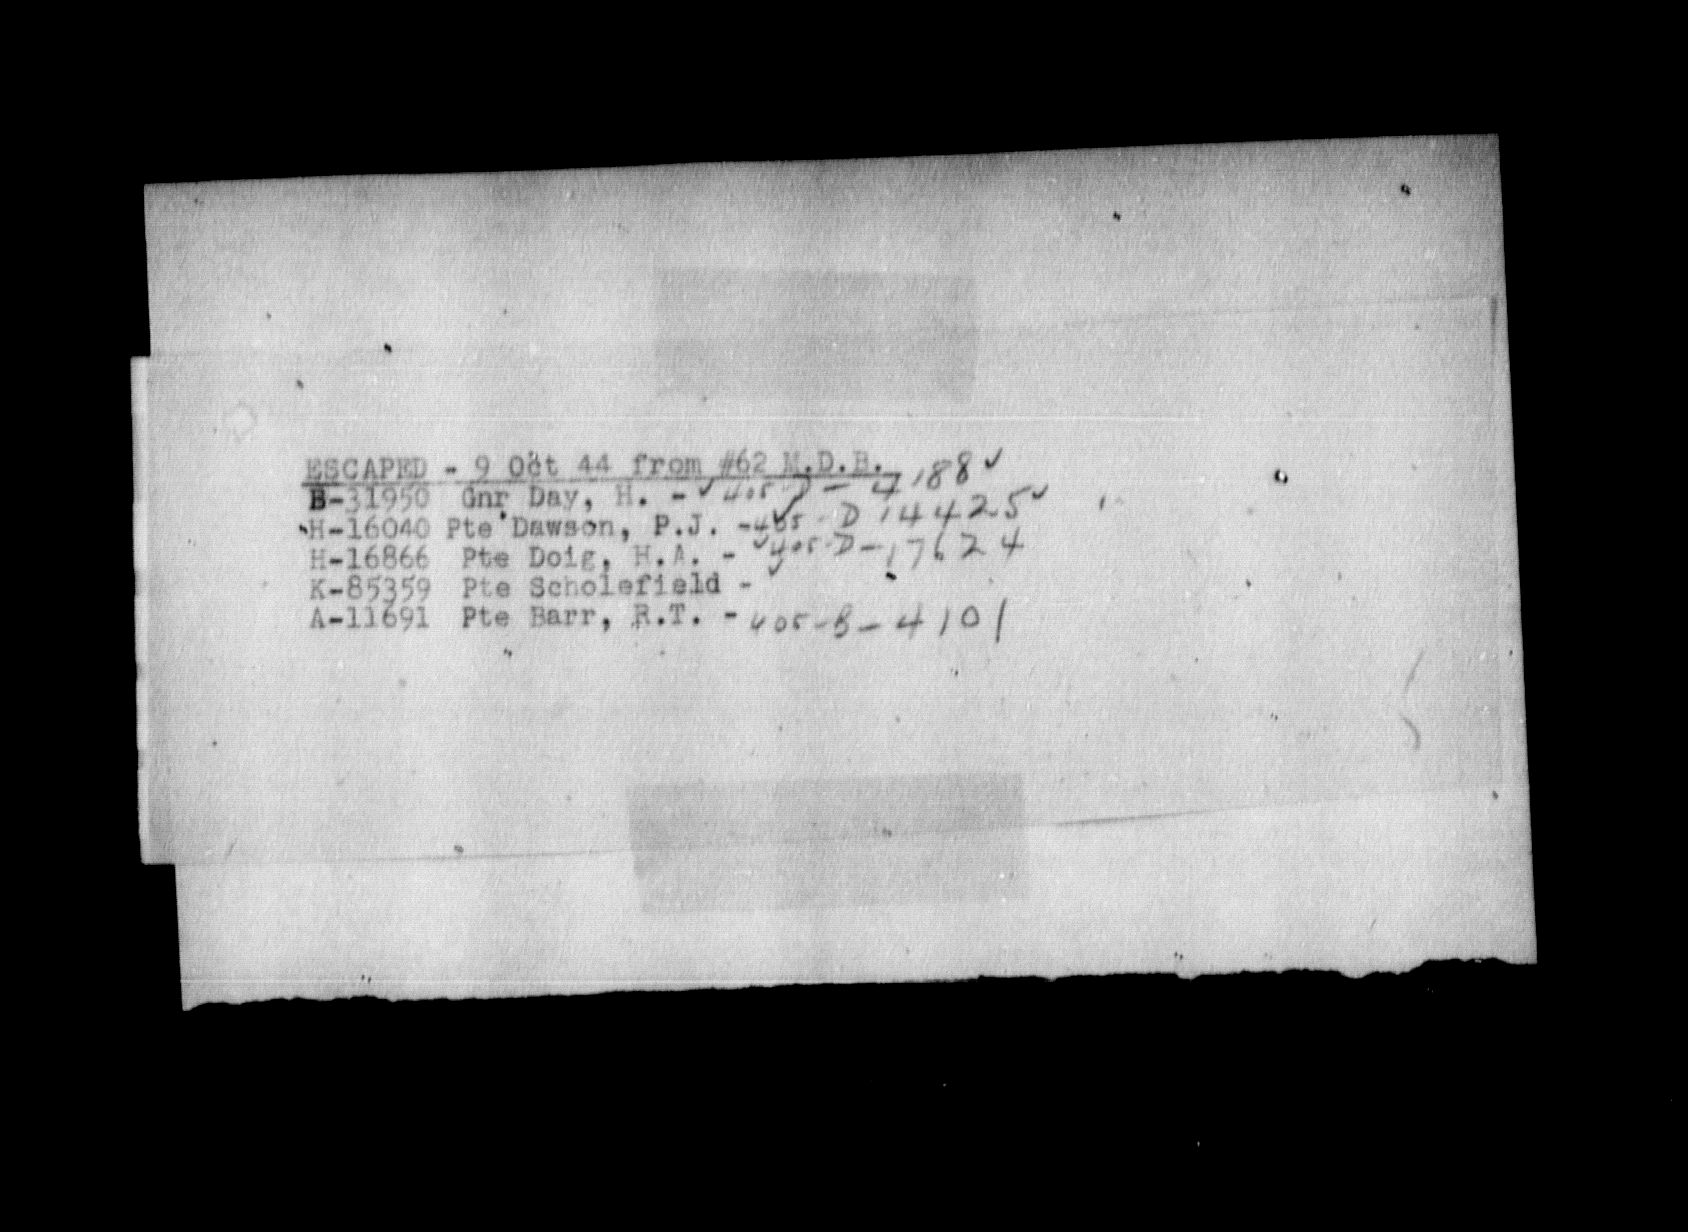 ESCAPED - 9 Oct 44 from #62 M.D.B.
B-31950 Gnr Day, H. - ✓ 405-D-4188 ✓
H-16040 Pte Dawson, P.J. - 405-D 14425 ✓
H-16866 Pte Doig, H.A. - ✓ 405-D-17624
K-85359 Pte Scholefield - ✓
A-11691 Pte Barr, R.T. - 405-B-4101